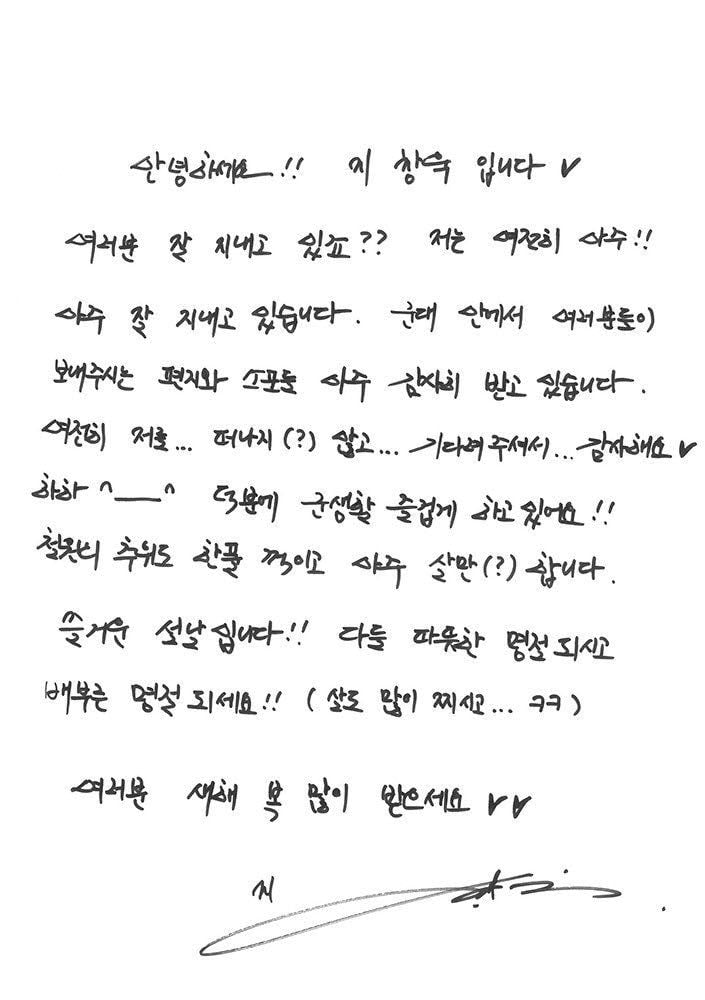 안녕하세요..!! 지 창욱 입니다 ♥
여러분 잘 지내고 있죠?? 저는 여전히 아주!!
아주 잘 지내고 있습니다. 군대 안에서 여러분들이
보내주시는 편지와 소포들 아주 감사히 받고 있습니다.
여전히 저를... 떠나지(?) 않고... 기다려주셔서... 감사해요♥
하하 ^___^ 덕분에 군생활 즐겁게 하고있어요!!
철원의 추위도 한풀 꺽이고 아주 살만(?)합니다.
즐거운 설날입니다!! 다들 따뜻한 명절되시고
배부른 명절되세요!! (살도 많이 찌시고... ㅋㅋ)
여러분 새해 복 많이 받으세요 ♥♥
지